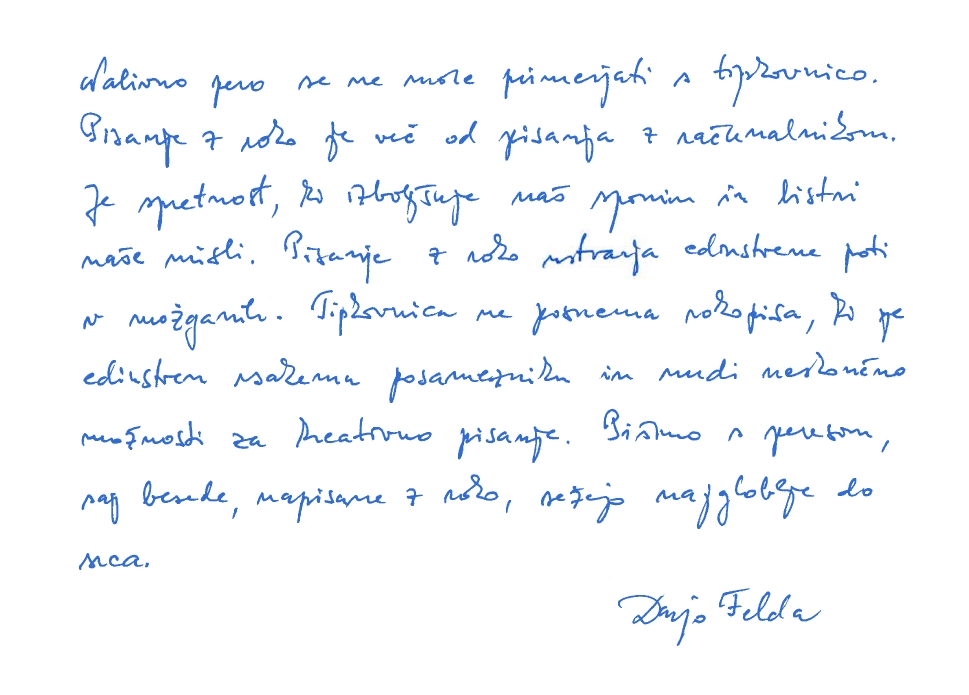 Nalivno pero se ne more primerjati s tipkovnico.
Pisanje z roko je več od pisanja z računalnikom.
Je spretnost, ki izboljšuje naš spomin in bistri
naše misli. Pisanje z roko ustvarja edinstvene poti
v možganih. Tipkovnica ne posnema rokopisa, ki je
edinstven vsakemu posamezniku in nudi neskončno
možnosti za kreativno pisanje. Pišimo s peresom,
saj besede, napisane z roko, sežejo najgloblje do
srca.
Darjo Felda